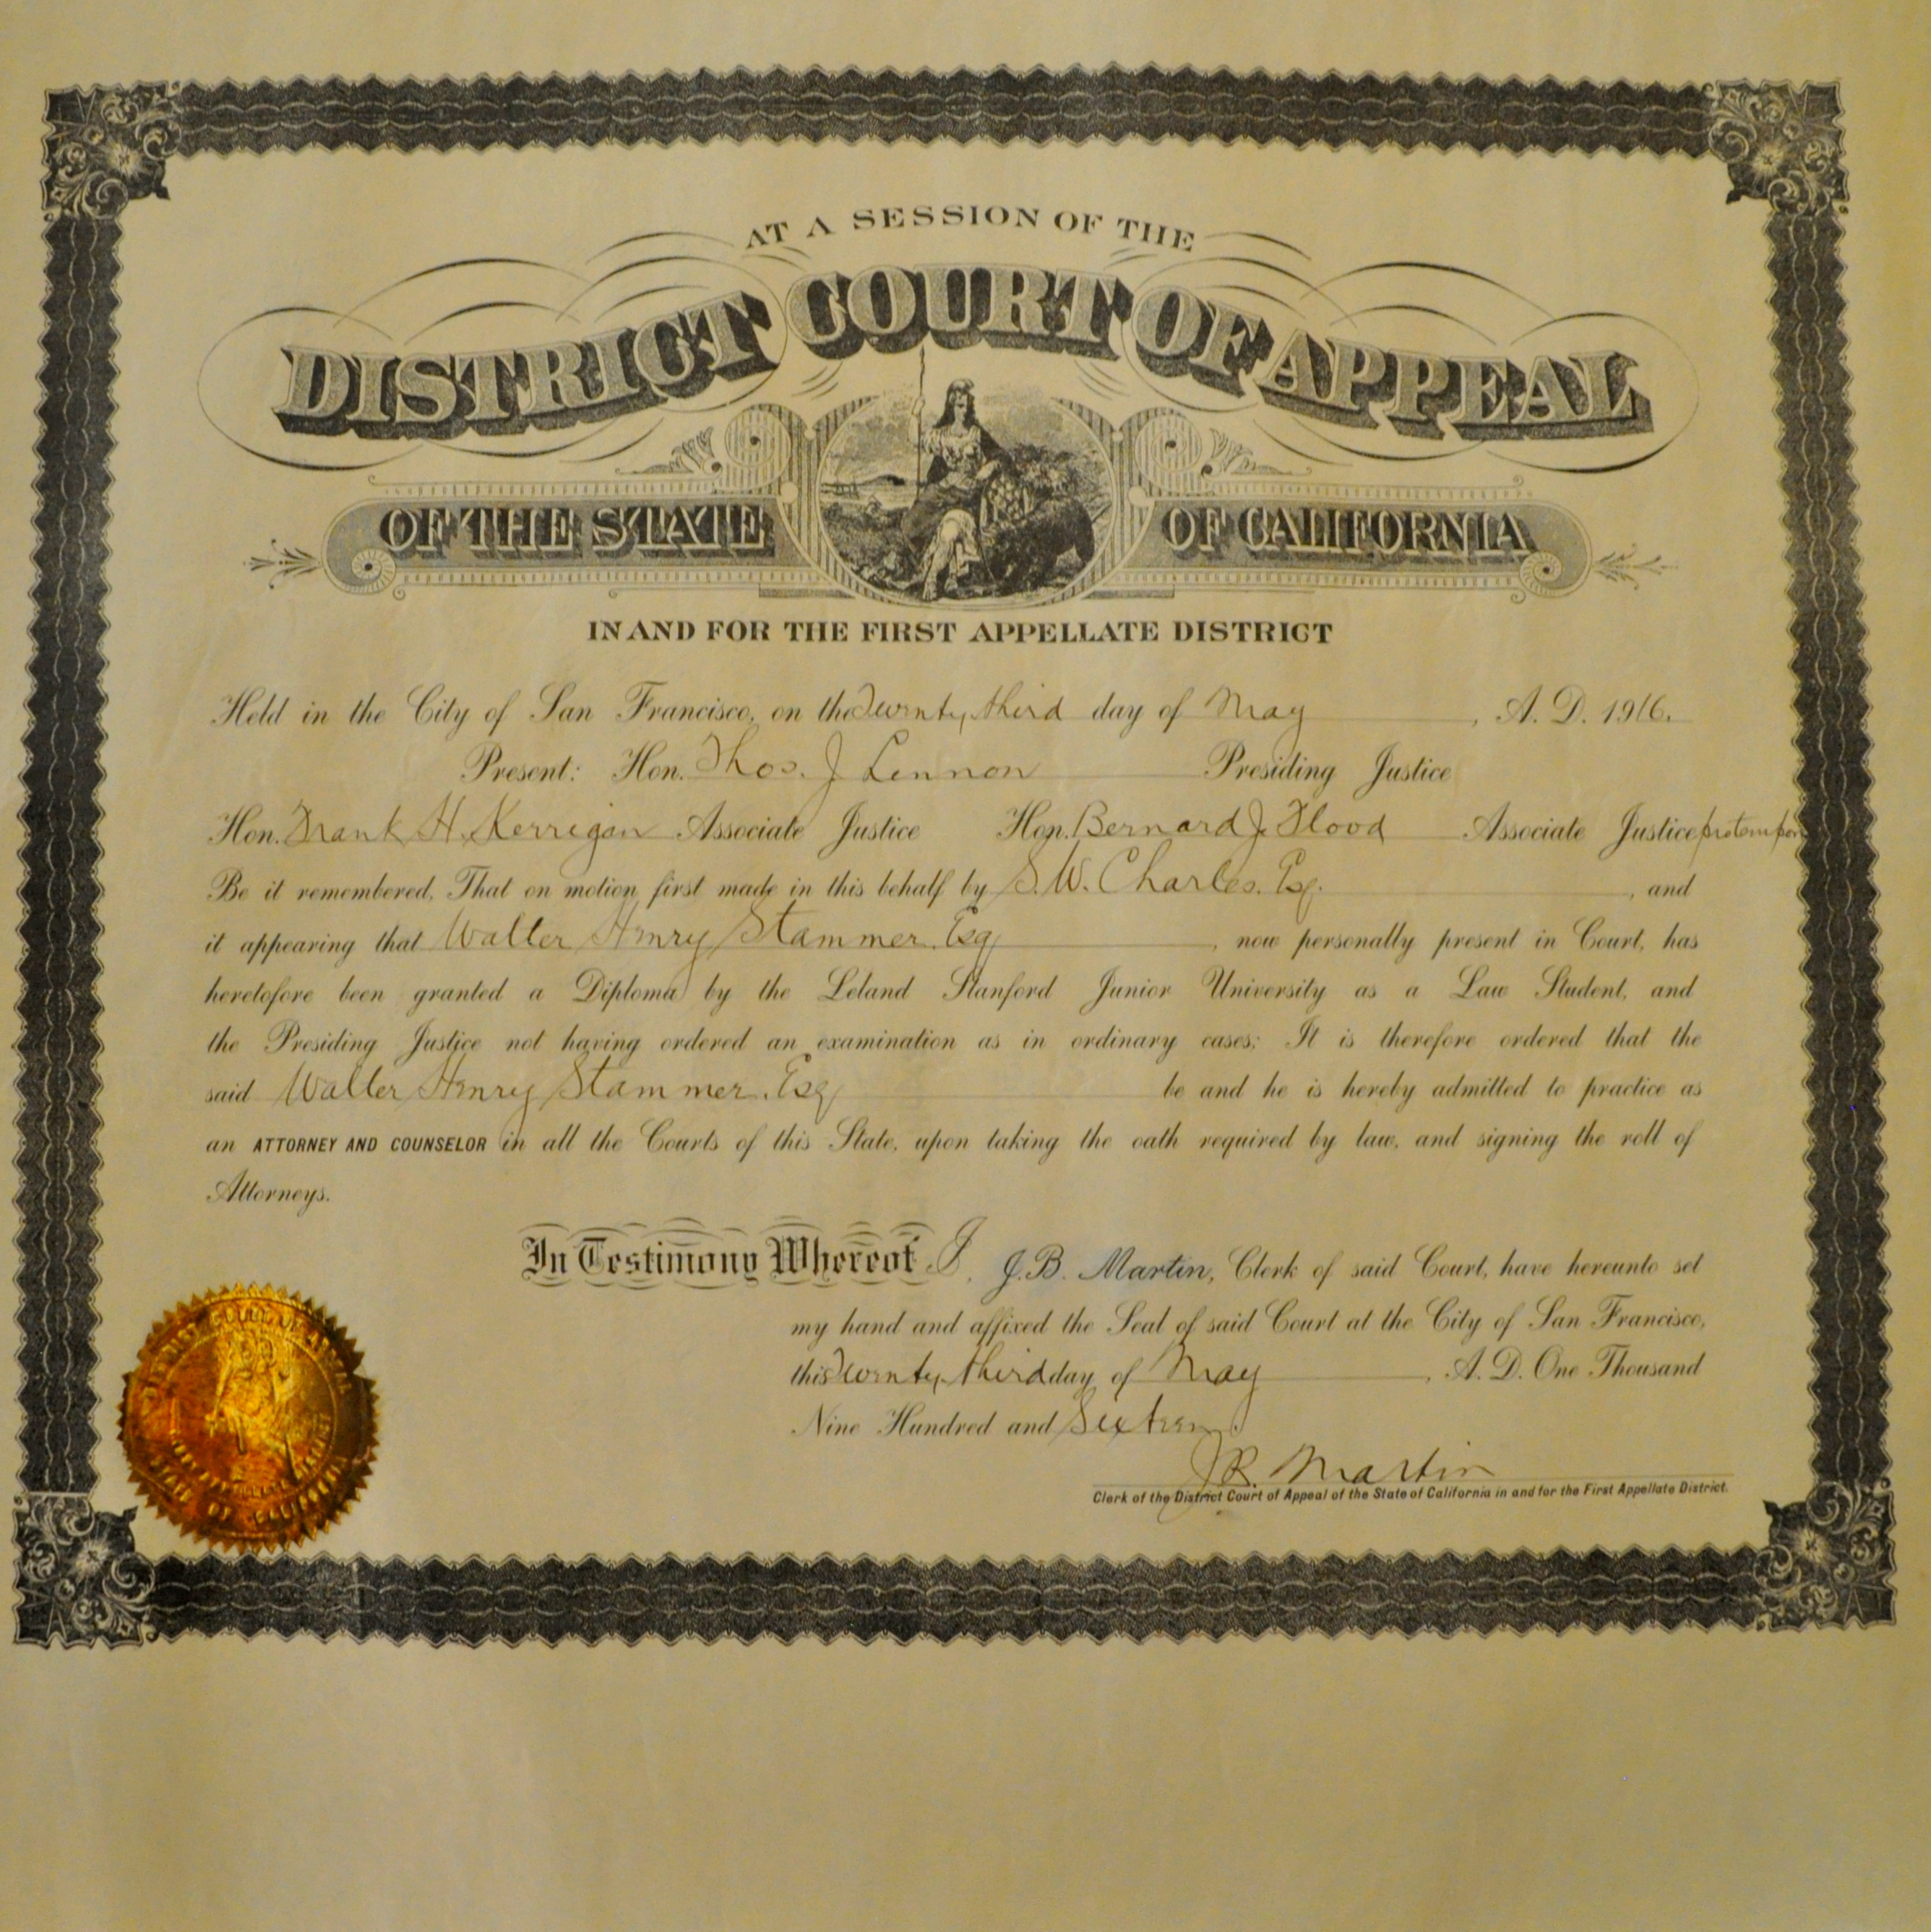 AT A SESSION OF THE
DISTRICT COURT OF APPEAL
OF THE STATE OF CALIFORNIA
IN AND FOR THE FIRST APPELLATE DISTRICT
Held in the City of San Francisco, on the Twenty third day of May, A. D. 1916.
Present: Hon. Thos. J Lennon Presiding Justice
Hon. Frank H. Kerrigan Associate Justice Hon. Bernard J. Flood Associate Justice pro tempore
Be it remembered, That on motion first made in this behalf by S. W. Charles. Esq., and
it appearing that Walter Henry Stammer, Esq, now personally present in Court, has
heretofore been granted a Diploma by the Leland Stanford Junior University as a Law Student, and
the Presiding Justice not having ordered an examination as in ordinary cases; It is therefore ordered that the
said Walter Henry Stammer, Esq be and he is hereby admitted to practice as
an ATTORNEY AND COUNSELOR in all the Courts of this State, upon taking the oath required by law, and signing the roll of
Attorneys.
In Testimony Whereof I, J. B. Martin, Clerk of said Court, have hereunto set
my hand and affixed the Seal of said Court at the City of San Francisco,
this Twenty third day of May, A. D. One Thousand
Nine Hundred and Sixteen.
J B. Martin
Clerk of the District Court of Appeal of the State of California in and for the First Appellate District.
STATE OF CALIFORNIA